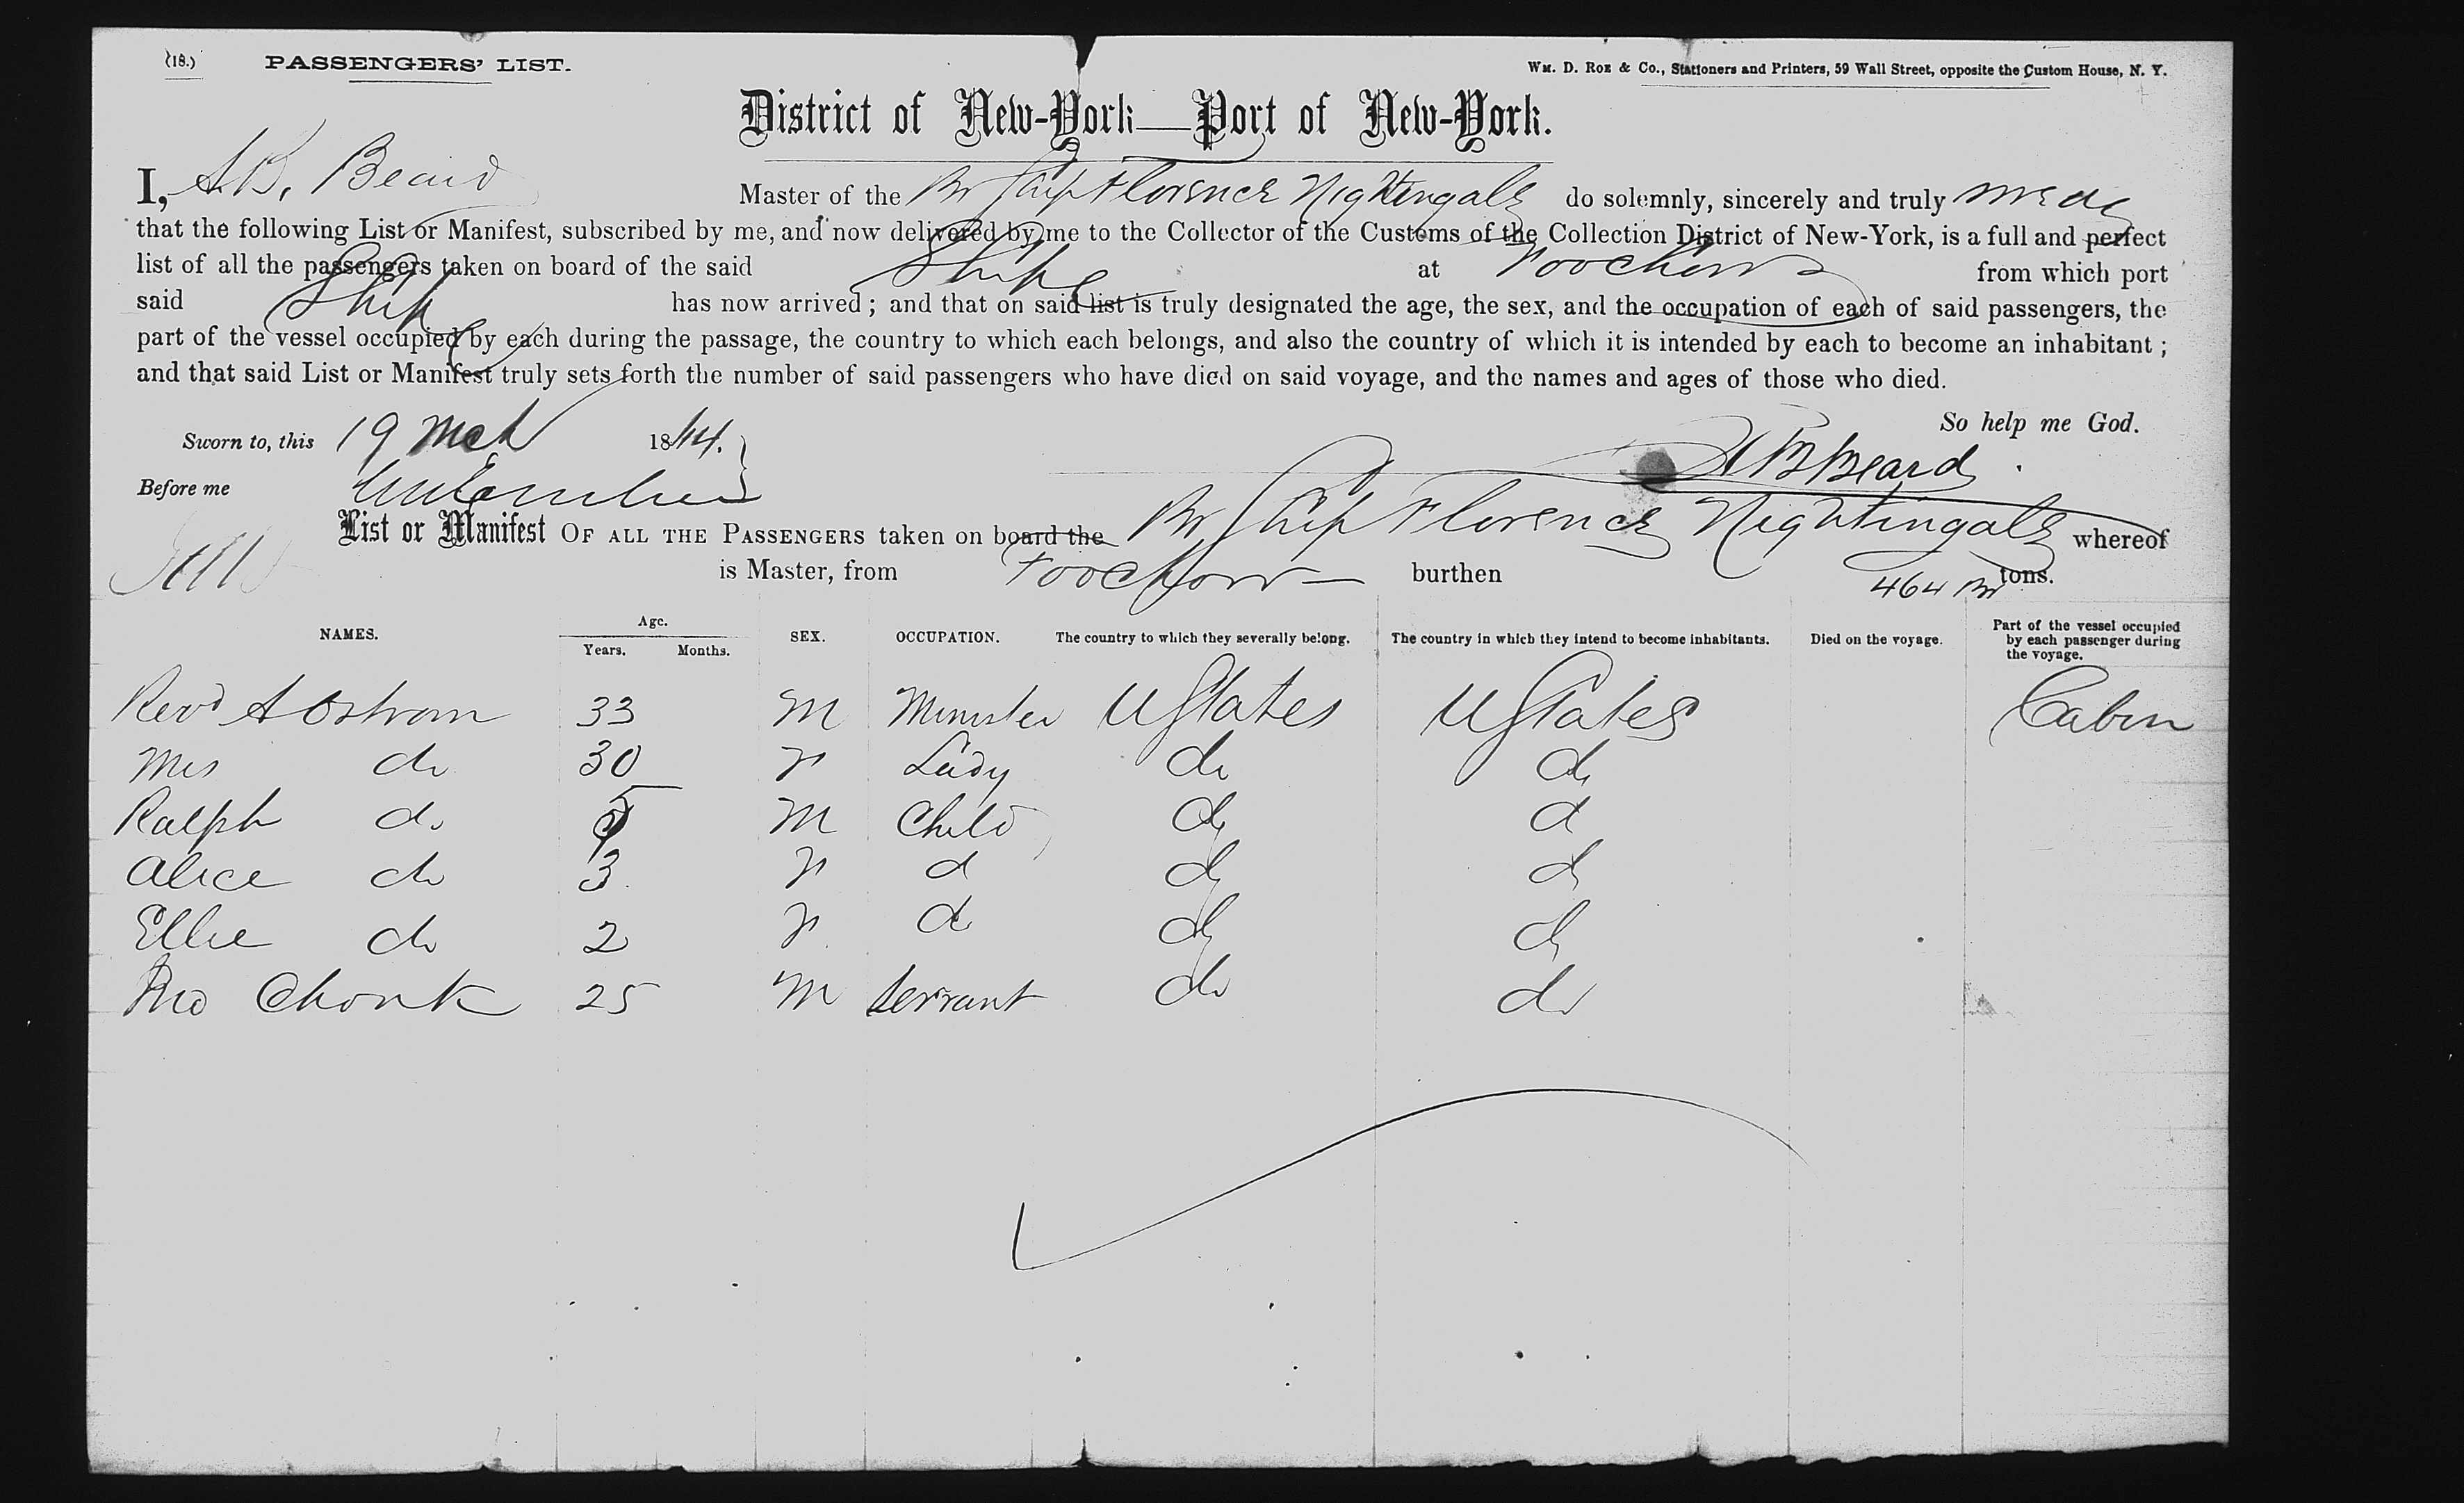 (18.) PASSENGERS' LIST.
WM. D. ROE & Co., Stationers and Printers, 59 Wall Street, opposite the Custom House, N. Y.
District of New-York—Port of New-York.
I, A.B. Beard Master of the Br Ship Florence Nightingale do solemnly, sincerely and truly
that the following List or Manifest, subscribed by me, and now delivered by me to the Collector of the Customs of the Collection District of New-York, is a full and perfect
list of all the passengers taken on board of the said Ship at Foochow from which port
said Ship has now arrived; and that on said list is truly designated the age, the sex, and the occupation of each of said passengers, the
part of the vessel occupied by each during the passage, the country to which each belongs, and also the country of which it is intended by each to become an inhabitant;
and that said List or Manifest truly sets forth the number of said passengers who have died on said voyage, and the names and ages of those who died.
So help me God.
Sworn to, this 19 Mch 1864.
Before me
A B Beard
List or Manifest OF ALL THE PASSENGERS taken on board the Br Ship Florence Nightingale whereof
is Master, from Foochow — burthen 464 tons.
NAMES. Age. Years. Months. SEX. OCCUPATION. The country to which they severally belong. The country in which they intend to become inhabitants. Died on the voyage. Part of the vessel occupied by each passenger during the voyage.
Revd A Ostrom 33 M Minister U States U States Cabin
Mrs do 30 F Lady do do
Ralph do 5 M Child do do
Alice do 3 F do do do
Ellie do 2 F do do do
Chonk 25 M Servant do do